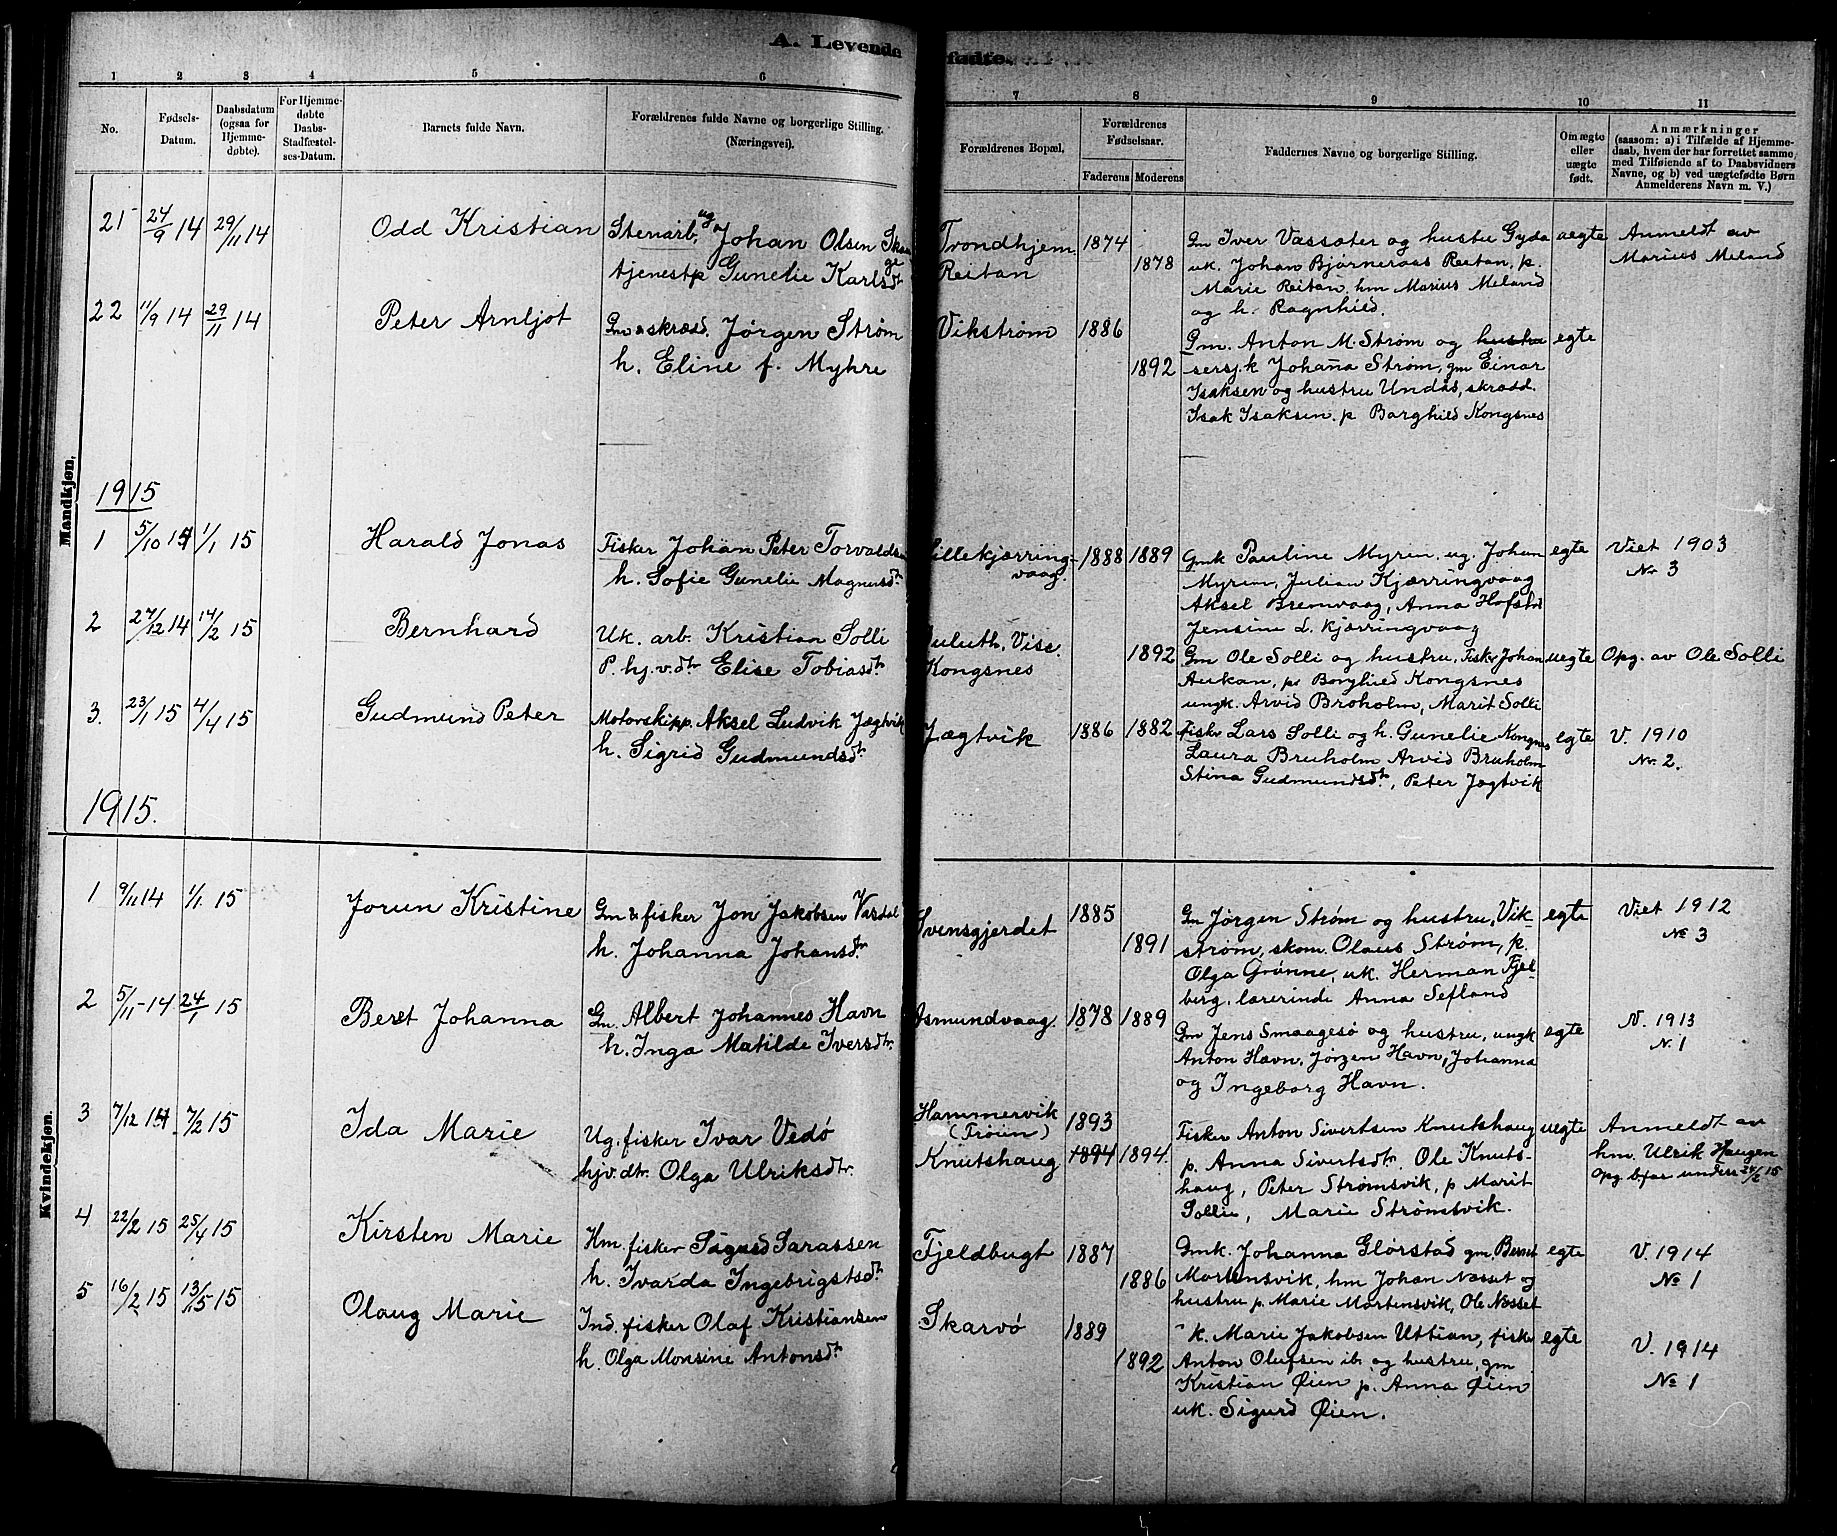 A. Levende
1 2 3 4 5 6
No.
Fødsels-
Datum.
Daabsdatum
(ogsaa for
Hjemme-
døbte).
For Hjemme-
døbte
Daabs-
Stadfæstel-
ses-Datum.
Barnets fulde Navn.
Forældrenes fulde Navne og borgerlige Stilling.
(Næringsvei).
Mandkjøn.
21 24/9 14 29/11 14 Odd Kristian
Stenarb. ug Johan Olsen
tjenestp Gunelie Karlsdt
22 11/9 14 29/11 14 Peter Arnljot
Gm & skrædd. Jørgen Strøm
h. Eline f. Myhre
1915
1 5/10 14 1/1 15 Harald Jonas
Fisker Johan Peter Torvalds
h. Sofie Gunelie Magnusdt
2 27/12 14 14/2 15 Bernhard
Uk. arb. Kristian Solli
P. hj.v.dtr Elise Tobiasdtr
3. 23/1 15 4/4 15 Gudmund Peter
Motorskipp. Aksel Ludvik Jægtvik
h. Sigrid Gudmundsdt
1915.
Kvindekjøn.
1 9/11 14 1/1. 15 Jorun Kristine
Gm & fisker Jon Jakobsen Vardal
h. Johanna Johansdtr
2 5/11-14 24/1 15 Beret Johanna
Gm. Albert Johannes Havn
h. Inga Matilde Iversdtr.
3 7/12 14 7/2 15 Ida Marie
Ug. fisker Ivar Vedø
hjv.dtr. Olga Ulriksdtr.
4 22/2 15 25/4 15 Kirsten Marie
Hm. fisker Sigurd Sarassen
h. Ivarda Ingebrigtsdt
5 16/2 15 13/5 15 Olaug Marie
Ind. fisker Olaf Kristiansen
h. Olga Monsine Antonsdtr
fødte.
7 8 9 10 11
Forældrenes Bopæl.
Forældrenes
Fødselsaar.
Faderens Moderens
Faddernes Navne og borgerlige Stilling.
Om ægte
eller
uægte
født.
Anmærkninger
(saasom: a) i Tilfælde af Hjemme-
daab, hvem der har forrettet samme,
med Tilføiende af to Daabsvidners
Navne, og b) ved uægtefødte Børn
Anmelderens Navn m. V.)
Trondhjem 1874 Gm Iver Vassøter og hustru Gyda uegte Anmeldt av
Reitan 1878 uk. Johan Bjørneraas Reitan, p. Marius Meland
Marie Reitan, hm Marius Meland
og h. Ragnhild.
Vikstrøm 1886 Gm. Anton M. Strøm og hustru egte
1892 sersj.k Johanna Strøm, gm Einar
Isaksen og hustru Undås, skrædd.
Isak Isaksen, p Borghild Kongsnes
Lillekjærring- 1888 1889 Gmk Pauline Myren, ug. Johan egte Viet 1903
vaag. Myren, Julian Kjærringvaag No 3
Aksel Bremvaag, Anna Hofstad
Jensine L. Kjærringvaag
Duluth, Visc. 1892 Gm Ole Solli og hustru, Fisk. Johan uegte Opg. av Ole Solli
Kongsnes Aukan, p Borghild Kongsnes
ungk. Arvid Broholm, Marit Solli
Jægtvik 1886 1882 fisker Lars Solli og h. Gunelie Kongsnes egte V. 1910
Laura Bruholm Arvid Bruholm No. 2.
Stina Gudmundsdt, Peter Jægtvik
Svensgjerdet 1885 Gm Jørgen Strøm og hustru, Vik- egte Viet 1912
1891 strøm, skom. Olaus Strøm, p. No 3
Olga Grønne, uk. Herman Fjel-
berg, lærerinde Anna Sefland
Asmundvaag. 1878 1889 Gm Jens Smaagesø og hustru, ungk egte V. 1913
Anton Havn, Jørgen Havn, Johanna N. 1
og Ingeborg Havn.
Hammervik
(Frøien) 1893 Fisker Anton Sivertsen Knutshaug uegte Anmeldt av
Knutshaug 1894 1894. p. Anna Sivertsdt. Ole Knuts- hm. Ulrik Haugen
haug, Peter Strømsvik, p Marit
Sollie, Marie Strømsvik.
Fjeldbugt 1887 Gmk. Johanna Glørstad gm. Bernt egte V. 1914
1886 Mortensvik, hm Johan Næsset og No 1
hustru p. Marie Mortensvik, Ole Næsset
Skarvø 1889 " k. Marie Jakobsen Uttian, fisker egte V. 1914
1892 Anton Olufsen ib. og hustru, gm No 1
Kristian Øien p. Anna Øien
uk. Sigurd Øien.